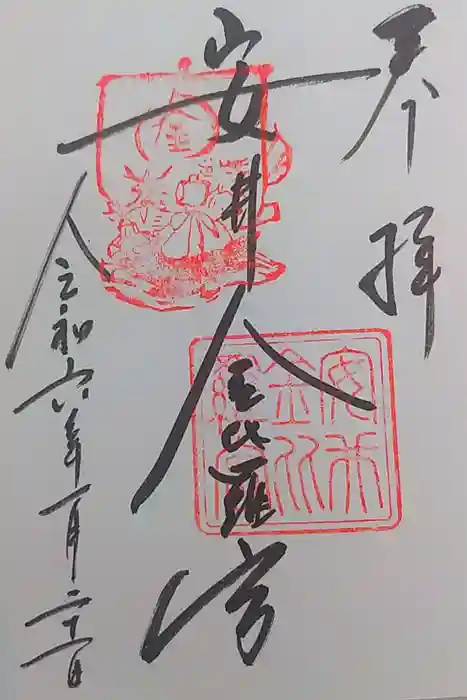 奉拝
安井金比羅宮
令和六年一月二十一日
金
安井
金比
羅宮